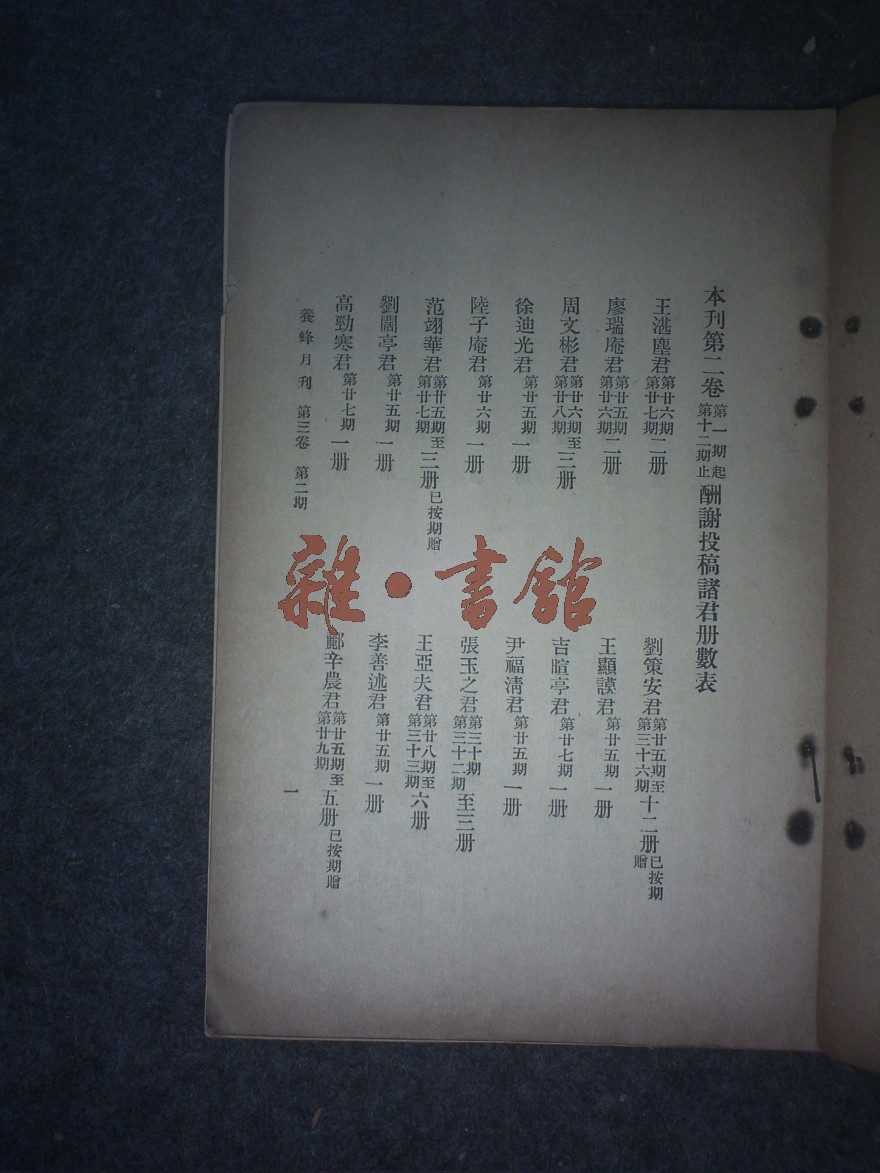 本刊第二卷第一期起第十二期止酬謝投稿諸君册數表
王湛塵君第廿六期第廿七期二册
劉策安君第廿五期至第三十六期十二册已按期贈
廖瑞庵君第廿五期第廿六期二册
王顯謨君第廿五期一册
周文彬君第廿六期至第廿八期三册
吉暄亭君第廿七期一册
徐迪光君第廿五期一册
尹福清君第廿五期一册
陸子庵君第廿六期一册
張玉之君第三十期第三十二期至三册
范翊華君第廿五期至第廿七期三册已按期贈
王亞夫君第廿八期至第三十三期六册
劉闊亭君第廿五期一册
李善述君第廿五期一册
高勁寒君第廿七期一册
鄺辛農君第廿五期至第廿九期五册已按期贈
養蜂月刊 第三卷 第二期
一
雜·書館